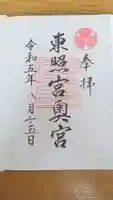 奉拝
東照宮奥宮
令和五年八月十五日